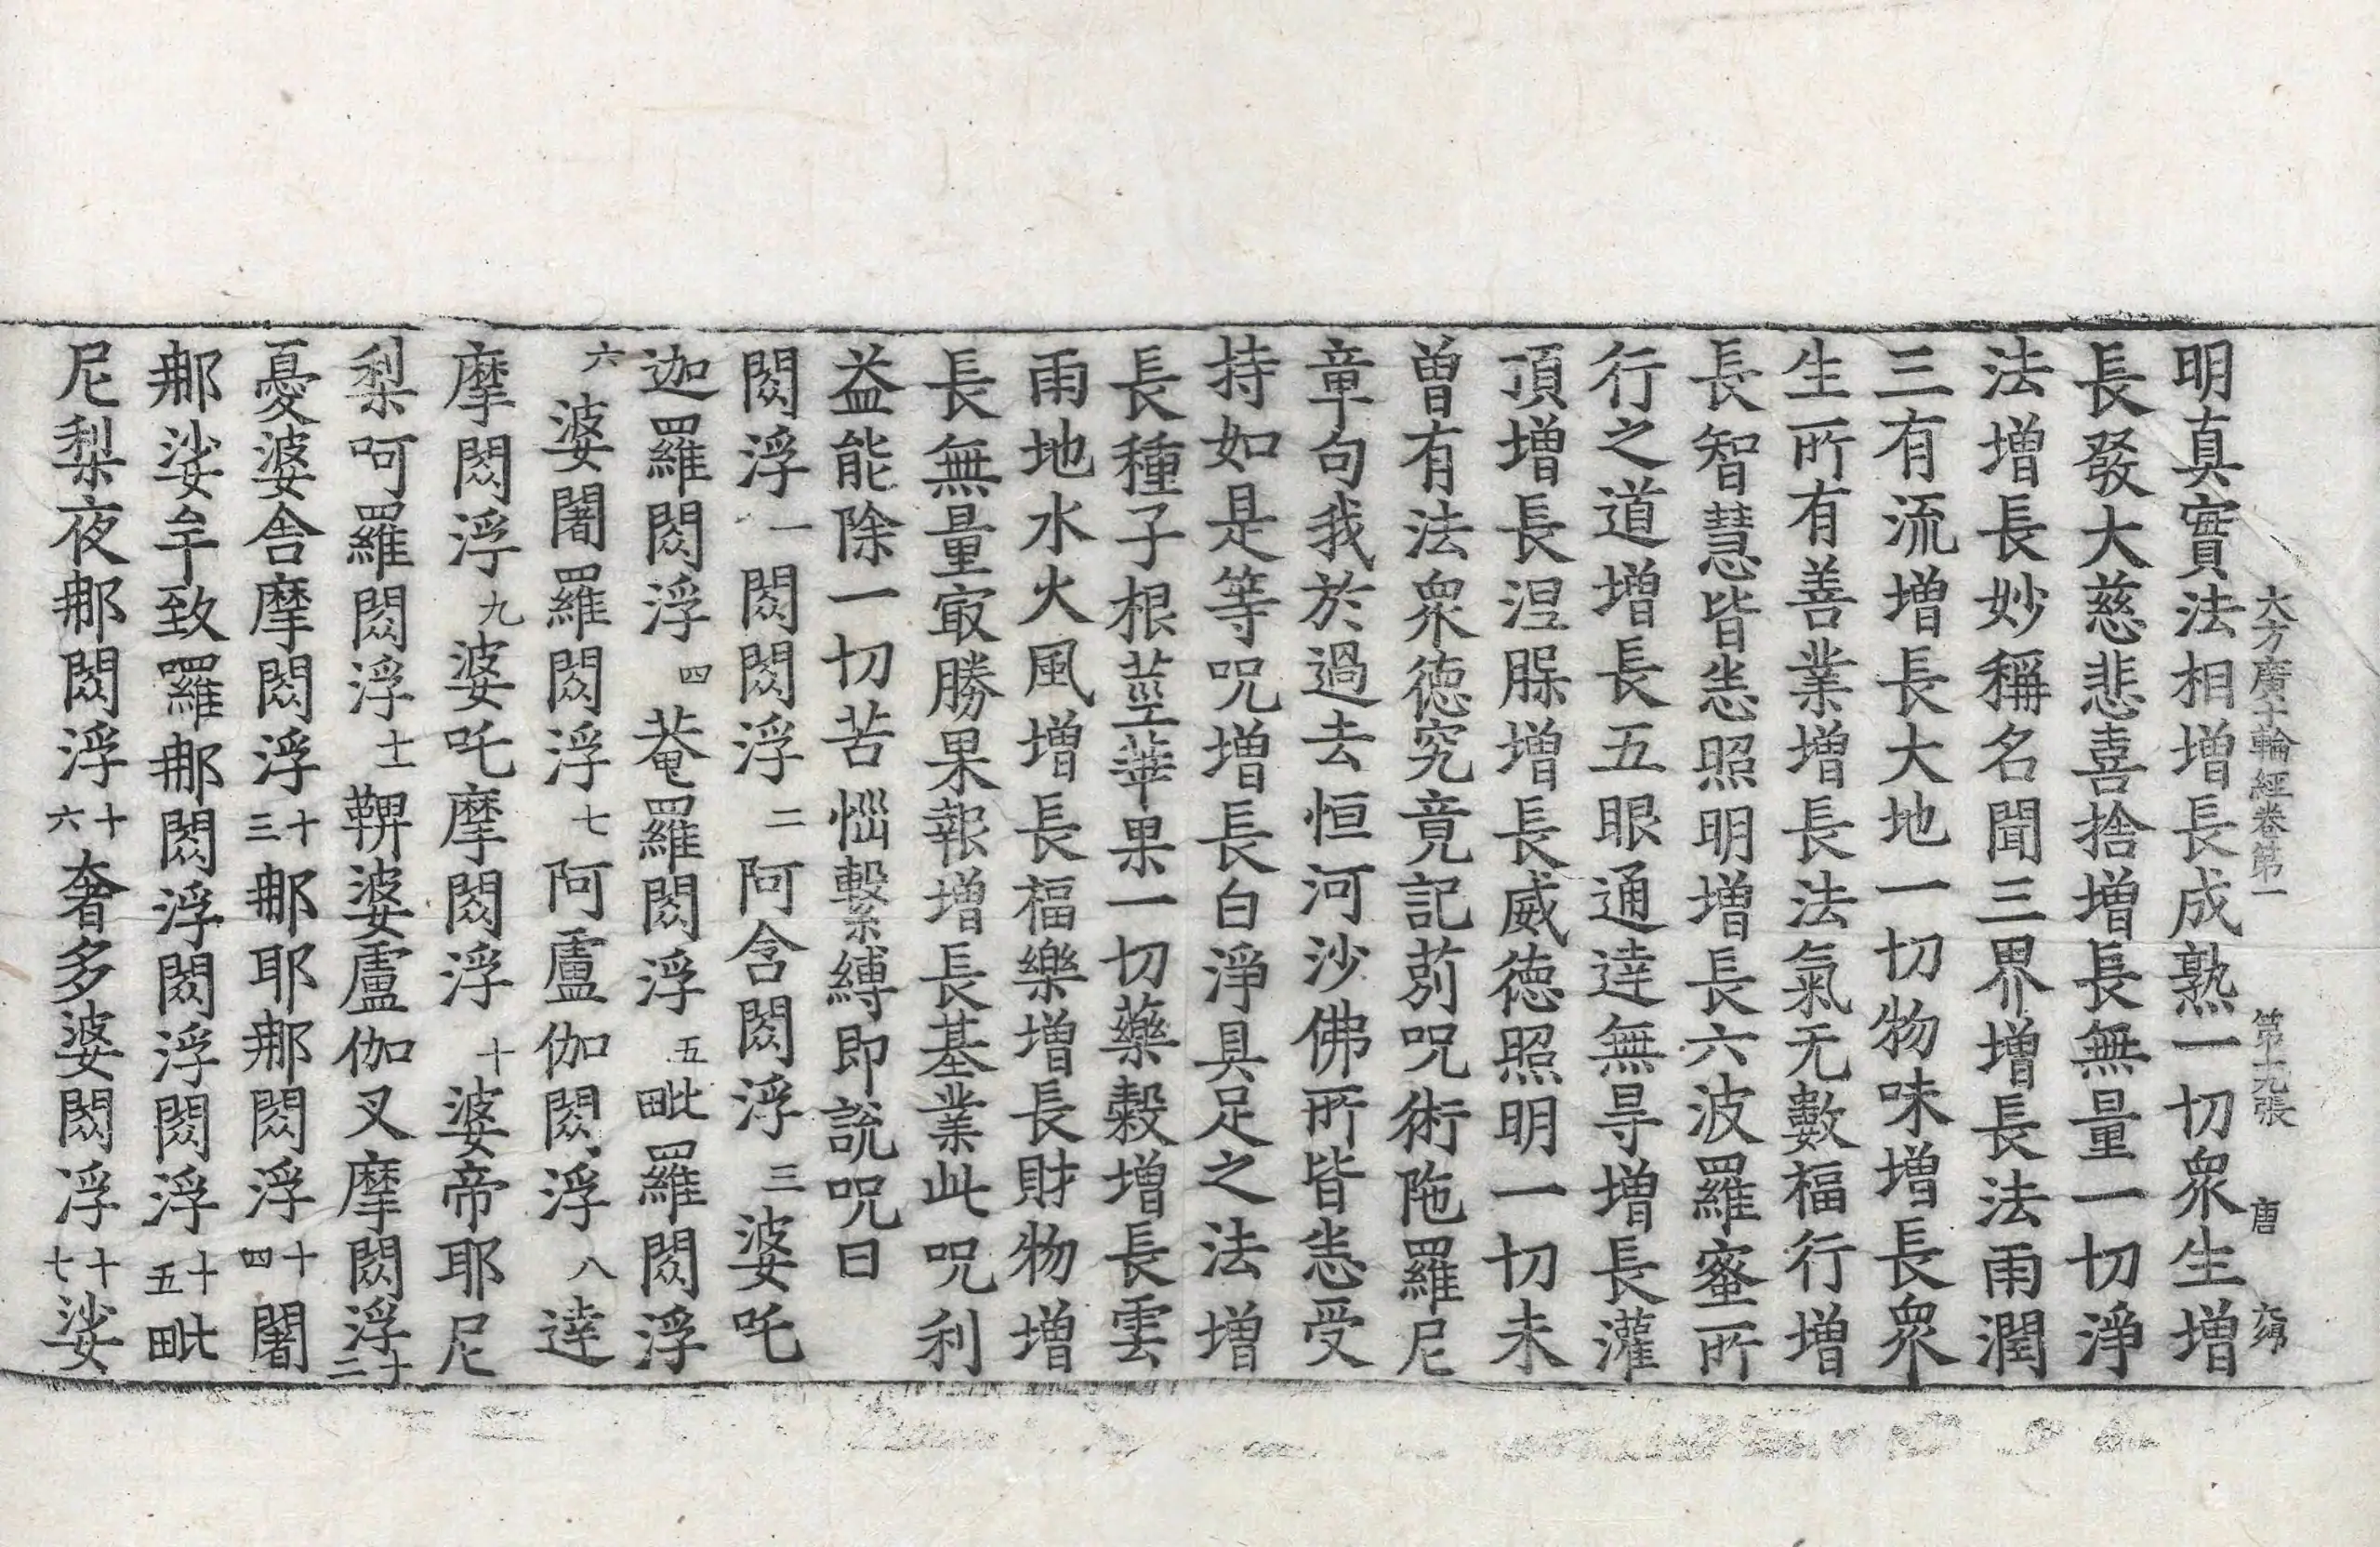 大方廣十輪經卷第一　第十九張　唐
明真實法相增長成熟一切衆生增
長發大慈悲喜捨增長無量一切淨
法增長妙稱名聞三界增長法雨潤
三有流增長大地一切物味增長衆
生所有善業增長法氣无數福行增
長智慧皆悉照明增長六波羅蜜所
行之道增長五眼通達無㝵增長灌
頂增長涅槃增長威德照明一切未
曾有法衆德究竟記莂呪術陁羅尼
章句我於過去恒河沙佛所皆悉受
持如是等呪增長白淨具足之法增
長種子根莖華果一切藥穀增長雲
雨地水火風增長福樂增長財物增
長無量㝡勝果報增長基業此呪利
益能除一切苦惱繫縛即說呪曰
閦浮一閦閦浮二阿含閦浮三婆吒
迦羅閦浮四菴羅閦浮五毗羅閦浮
六婆闍羅閦浮七阿盧伽閦浮八達
摩閦浮九婆吒摩閦浮十婆帝耶尼
梨呵羅閦浮十一鞞婆盧伽叉摩閦浮十二
憂婆舍摩閦浮十三那耶那閦浮十四闍
那娑牟致羅那閦浮閦浮閦浮十五毗
尼梨夜那閦浮十六奢多婆閦浮十七娑